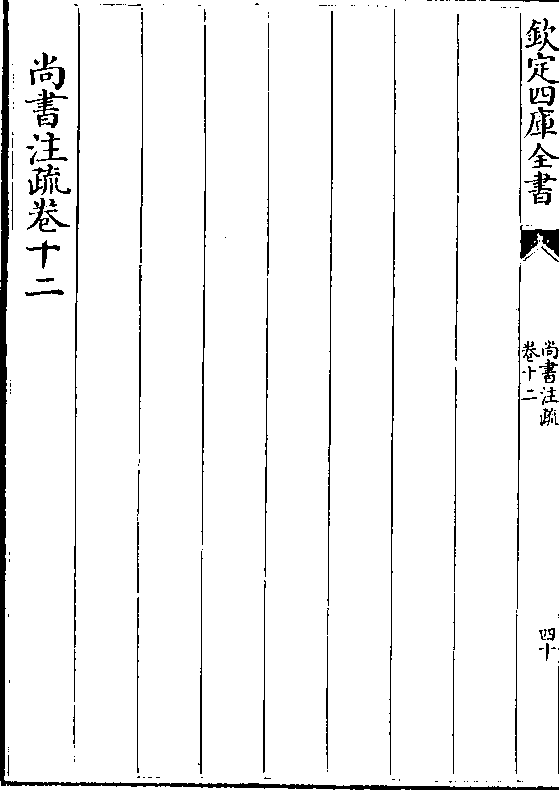 欽定四庫全書
尚書注疏
卷十二
四十
尚書注疏卷十二